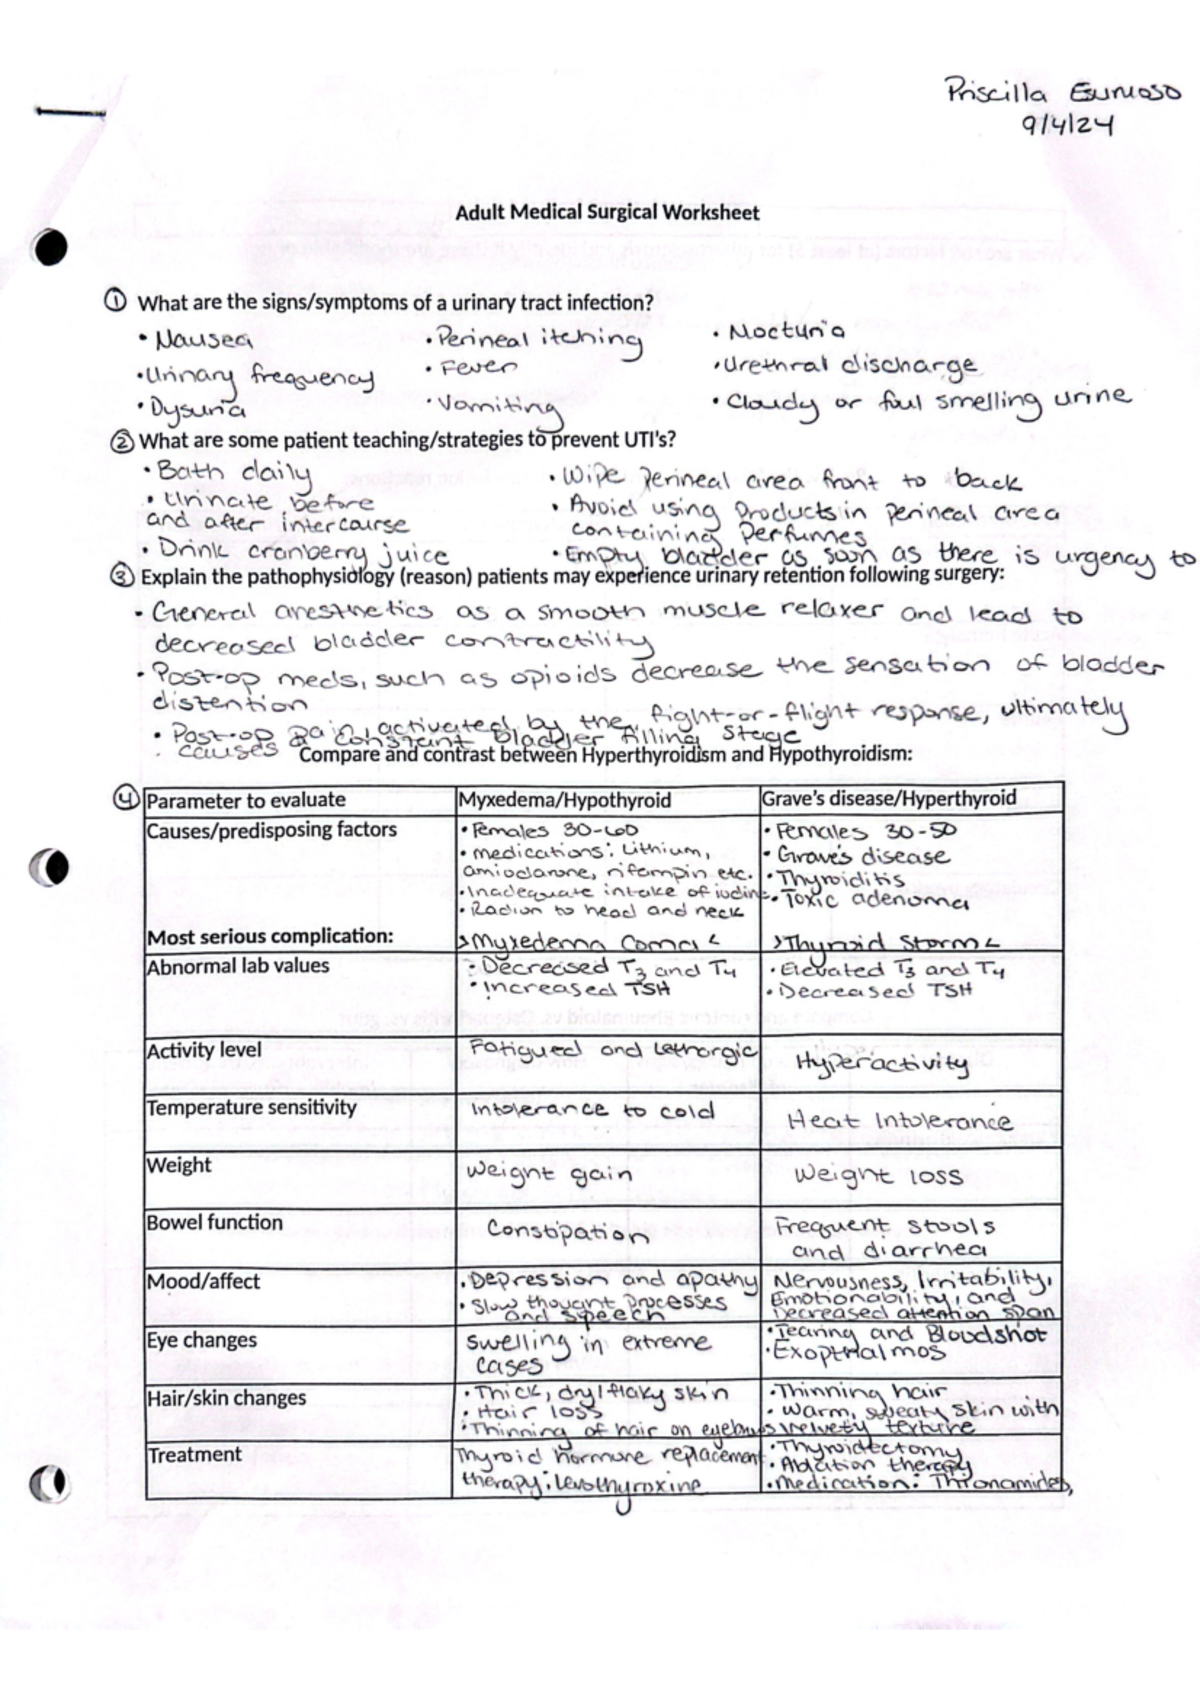 Priscilla
9/4/24
Adult Medical Surgical Worksheet
① What are the signs/symptoms of a urinary tract infection?
• Nausea • Perineal itching • Nocturia
• Urinary frequency • Fever • Urethral discharge
• Dysuria • Vomiting • Cloudy or foul smelling urine
② What are some patient teaching/strategies to prevent UTI's?
• Bath daily • Wipe perineal area front to back
• Urinate before • Avoid using products in perineal area
and after intercourse containing perfumes
• Drink cranberry juice • Empty bladder as soon as there is urgency to
③ Explain the pathophysiology (reason) patients may experience urinary retention following surgery:
• General anesthetics as a smooth muscle relaxer and lead to
decreased bladder contractility
• Post-op meds, such as opioids decrease the sensation of bladder
distention
• Post-op pain, activated by the fight-or-flight response, ultimately
causes a constant bladder filling stage
Compare and contrast between Hyperthyroidism and Hypothyroidism:
④ Parameter to evaluate Myxedema/Hypothyroid Grave's disease/Hyperthyroid
Causes/predisposing factors • Females 30-60 • Females 30-50
• medications: Lithium, • Graves disease
amiodarone, rifampin etc. • Thyroiditis
• Inadequate intake of iodine • Toxic adenoma
• Radion to head and neck
Most serious complication: >Myxedema Coma< >Thyroid Storm<
Abnormal lab values • Decreased T3 and T4 • Elevated T3 and T4
• Increased TSH • Decreased TSH
Activity level Fatigued and Lethargic Hyperactivity
Temperature sensitivity Intolerance to cold Heat Intolerance
Weight Weight gain Weight loss
Bowel function Constipation Frequent stools
and diarrhea
Mood/affect • Depression and apathy Nervousness, Irritability,
• Slow thought processes Emotionability, and
and speech Decreased attention span
Eye changes swelling in extreme • Tearing and Bloodshot
cases • Exopthalmos
Hair/skin changes • Thick, dry/flaky skin • Thinning hair
• Hair loss • Warm, sweaty skin with
• Thinning of hair on eyebrows velvety texture
Treatment Thyroid hormone replacement • Thyroidectomy
therapy: Levothyroxine • Ablation therapy
• Medication: Thionamides,